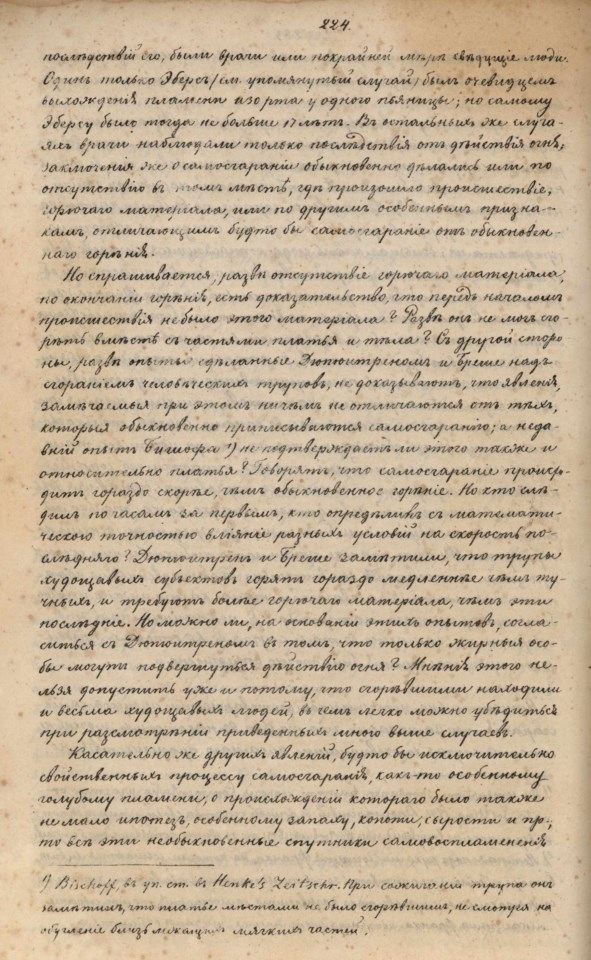 224.
послѣдствій его, были врачи или покрайней мѣрѣ свѣдущіе люди.
Одинъ только Эберсъ (см. упомянутый случай) былъ очевидцемъ
выхожденія пламени изо рта у одного пьяницы; но самому
Эберсу было тогда не больше 17 лѣтъ. Въ остальныхъ же случа-
яхъ врачи наблюдали только послѣдствія отъ дѣйствія огня;
заключенія же о самосгараніи обыкновенно дѣлались или по
отсутствію въ томъ мѣстѣ, гдѣ произошло происшествіе,
горючаго матеріала, или по другимъ особеннымъ призна-
камъ, отличающимъ будто бы самосгараніе отъ обыкновен-
наго горѣнія.
Но спрашивается, развѣ отсутствіе горючаго матеріала,
по окончаніи горѣнія, есть доказательство, что передъ началомъ
происшествія не было этого матеріала? Развѣ онъ не могъ сго-
рѣть вмѣстѣ съ частями платья и тѣла? Съ другой сторо-
ны, развѣ опыты сдѣланные Дюпюитреномъ и Бреше надъ
сгораніемъ человѣческихъ труповъ, не доказываютъ, что явленія,
замѣчаемыя при этомъ ничѣмъ не отличаются отъ тѣхъ,
которыя обыкновенно приписываются самосгаранію; а неда-
вній опытъ Бишофа ¹) не подтверждаетъ ли этого также и
относительно платья? Говорятъ, что самосгараніе происхо-
дитъ гораздо скорѣе, чѣмъ обыкновенное горѣніе. Но кто слѣ-
дилъ по часамъ за первымъ, кто опредѣлилъ съ математи-
ческою точностью вліяніе разныхъ условій на скорость по-
слѣдняго? Дюпюитренъ и Бреше замѣтили, что трупы
худощавыхъ субъектовъ горятъ гораздо медленнѣе чѣмъ ту-
чныхъ, и требуютъ болѣе горючаго матеріала, чѣмъ эти
послѣдніе. Но можно ли, на основаніи этихъ опытовъ, согла-
ситься съ Дюпюитреномъ въ томъ, что только жирныя осо-
бы могутъ подвергнуться дѣйствію огня? Мнѣнія этого не-
льзя допустить уже и потому, что сгорѣвшими находили
и весьма худощавыхъ людей, въ чемъ легко можно убѣдиться
при разсмотрѣніи приведенныхъ много выше случаевъ.
Касательно же другихъ явленій, будто бы исключительно
свойственныхъ процессу самосгаранія, какъ-то особенному
голубому пламени, о происхожденіи котораго было также
не мало ипотезъ, особенному запаху, копоти, сырости и пр.,
то всѣ эти необыкновенные спутники самовоспламененія
¹) Bischoff, въ уп. ст. въ Henke's Zeitschr. При сожиганіи трупа онъ
замѣтилъ, что платье мѣстами не было сгорѣвшимъ, не смотря на
обугленіе близъ лежащихъ мягкихъ частей.